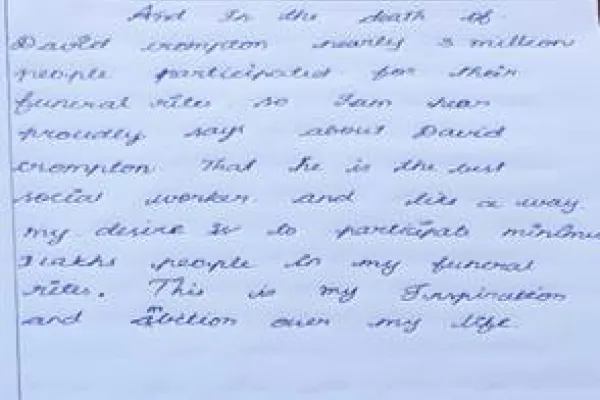 And In the death of
David crompton nearly 3 million
people participated for their
funeral rites so Iam hear
proudly says about David
crompton. That he is the best
social worker and like a way
my desire is to participats minimu
people in my funeral
rites. This is my Inspiration
and ambition over my life.